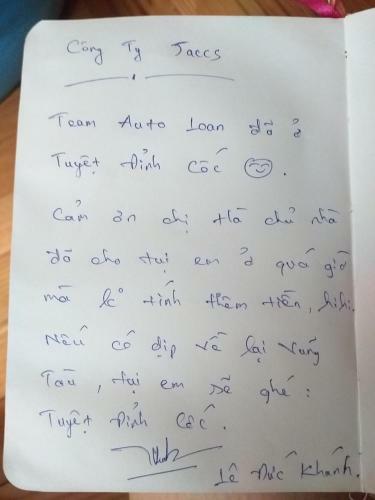 Công Ty Jaccs
Team Auto Loan đã ở
Tuyệt Đỉnh Cốc 😊.
Cảm ơn chị Hà chủ nhà
đã cho tụi em ở quá giờ
mà k° tính thêm tiền, hihi.
Nếu có dịp về lại Vũng
Tàu, tụi em sẽ ghé:
Tuyệt Đỉnh Cốc.
Lê Đức Khánh.